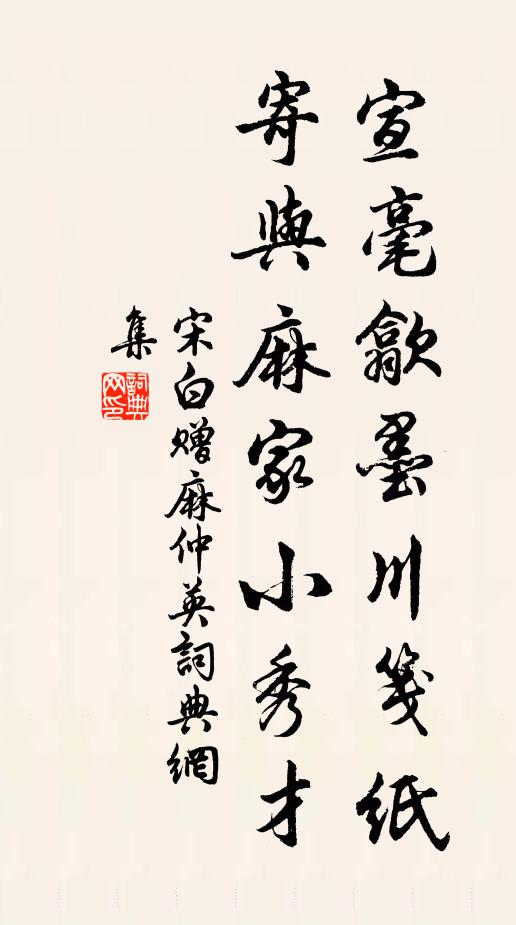 宣毫歙墨川箋紙
寄與麻家小秀才
宋白贈麻仲英詞典網
集
詞典
网印